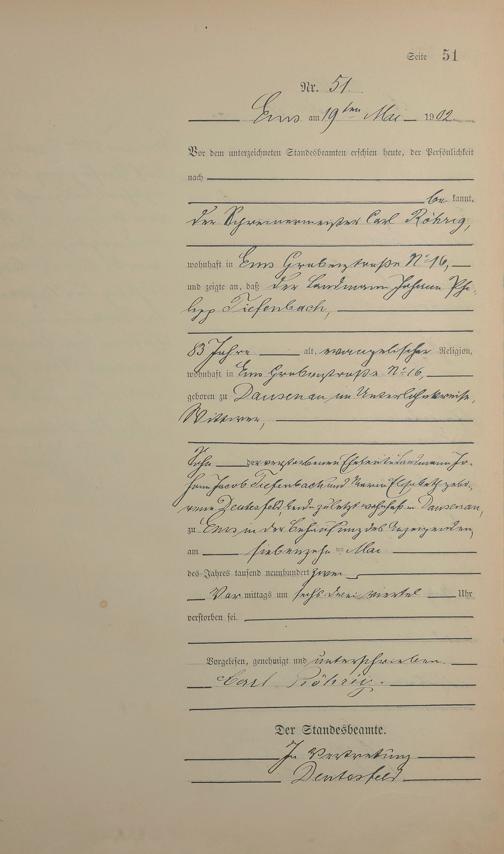 Seite 51
Nr. 51.
Ems am 19ten Mai 1902
Vor dem unterzeichneten Standesbeamten erschien heute, der Persönlichkeit
nach
be kannt,
der Schreinermeister Carl Röhrig,
wohnhaft in Ems Grabenstraße No 16,
und zeigte an, daß der Landmann Johann Phi-
lipp Tiefenbach,
83 Jahre alt, evangelischer Religion,
wohnhaft in Ems Grabenstraße No 16,
geboren zu Dausenau im Unterlahnkreise,
Wittwer,
Sohn der verstorbenen Eheleute Landmann Jo-
hann Jacob Tiefenbach und Maria Elisabeth gebo-
rene Deutesfeld, beide zuletzt wohnhaft in Dausenau,
zu Ems in der Behausung des Anzeigenden,
am siebenzehn Mai
des Jahres tausend neunhundert zwei
Vor mittags um sechs drei viertel Uhr
verstorben sei.
Vorgelesen, genehmigt und unterschrieben.
Carl Röhrig.
Der Standesbeamte.
In Vertretung
Deutesfeld